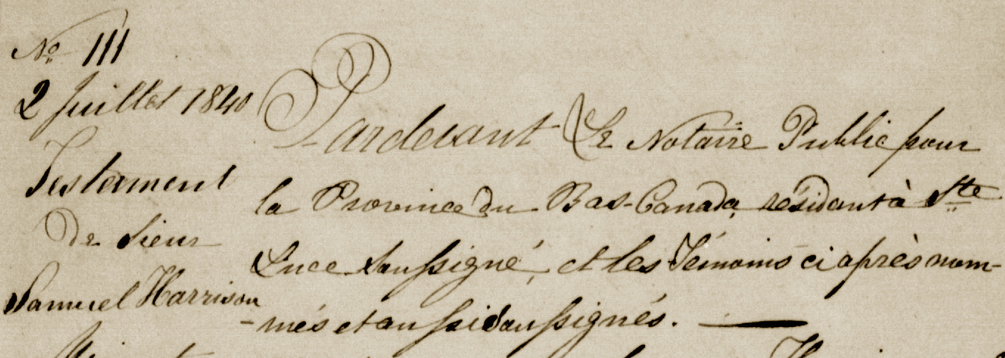 No. 111
2 Juillet 1840
Testament
De Sieur
Samuel Harrison
Pardevant Le Notaire Public pour
la Province du Bas-Canada, résidant à Ste
Luce soussigné, et les Témoins ci après nom-
més et aussi soussignés.